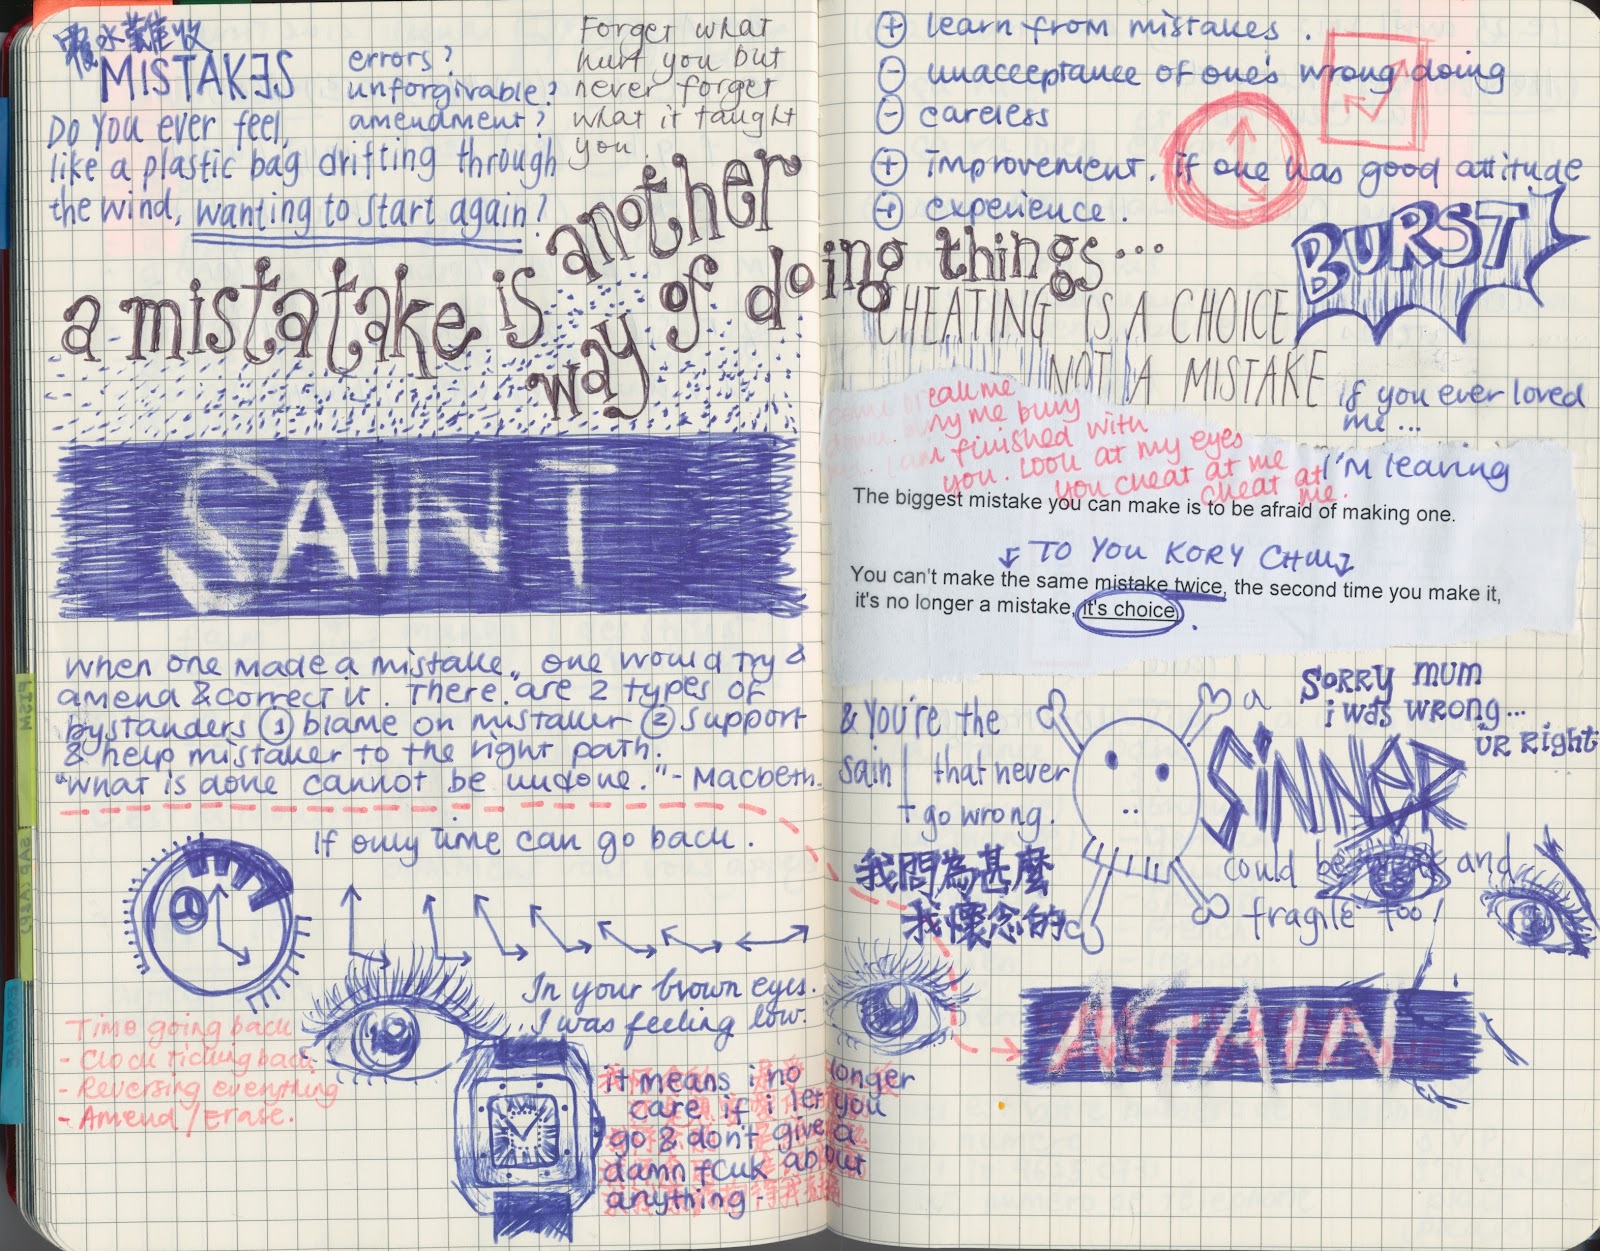 覆水難收
MISTAKES
errors?
unforgivable?
amendment?
Forget what
hurt you but
never forget
what it taught
you.
Do you ever feel,
like a plastic bag drifting through
the wind, wanting to start again?
a mistatake is another way of doing things...
SAINT
when one made a mistake, one would try &
amend & correct it. There are 2 types of
bystanders ① blame on mistaker ② support
& help mistaker to the right path.
"What is done cannot be undone." - Macbeth.
If only time can go back.
Time going back
- Clock ticking back
- Reversing everything
- Amend / Erase.
In your brown eyes.
I was feeling low.
it means i no longer
care if i let you
go & don't give a
damn fcuk about
anything.
⊕ learn from mistakes.
⊖ unacceptance of one's wrong doing
⊖ careless
⊕ improvement. if one has good attitude
⊕ experience.
BURST
CHEATING IS A CHOICE
NOT A MISTAKE
if you ever loved
me...
I'M leaving
call me
my me bury
finished with
you. Look at my eyes
you cheat at me
cheat at me.
The biggest mistake you can make is to be afraid of making one.
TO YOU KORY CHIU
You can't make the same mistake twice, the second time you make it,
it's no longer a mistake, it's choice.
& You're the
saint that never
go wrong.
a
SINNER
could be and
fragile too!
SORRY MUM
i was wrong...
UR Right
我問為甚麼
我懷念的
AGAIN